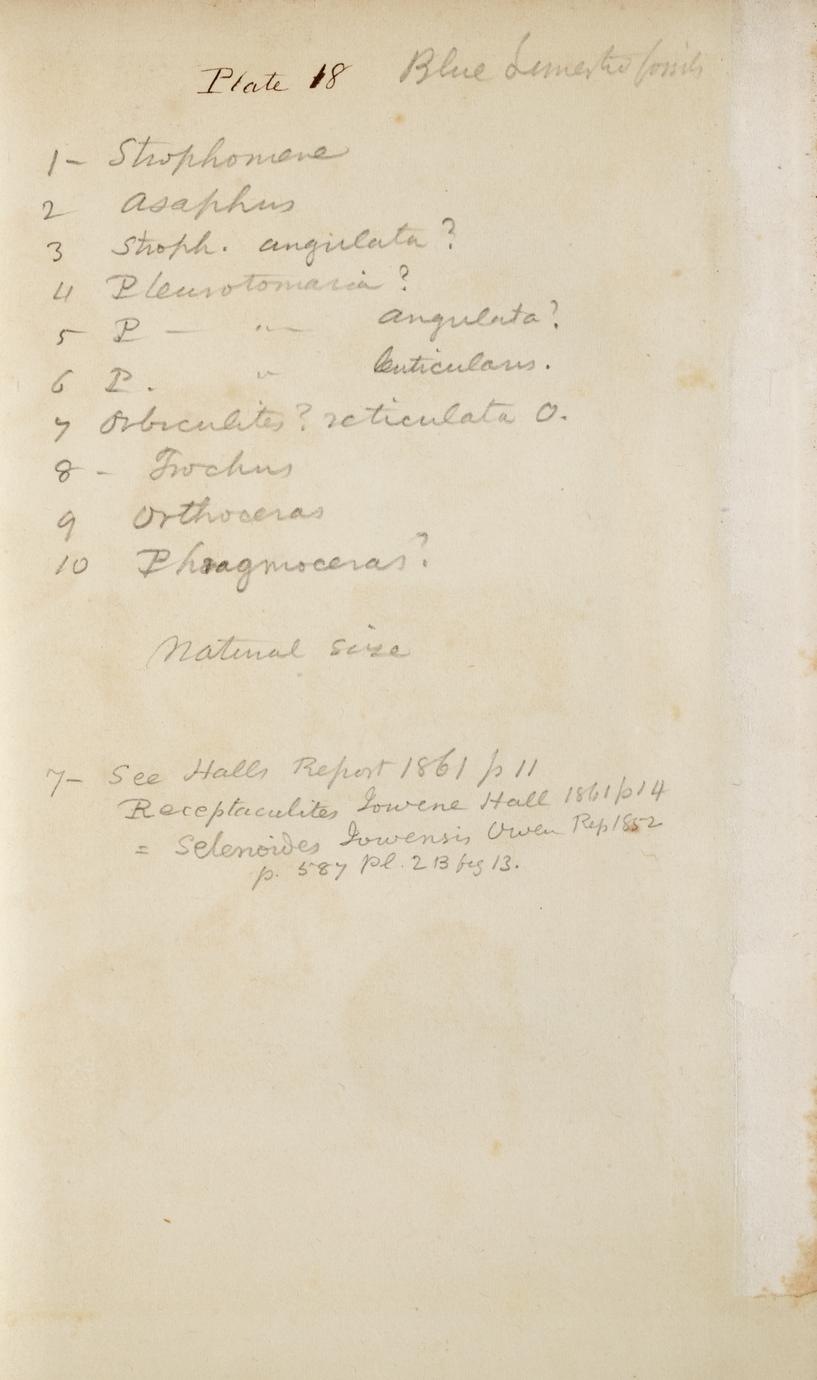 Plate 18 Blue Limestone fossils
1- Strophomene
2 Asaphus
3 Stroph. angulata ?
4 Pleurotomaria ?
5 P — " — angulata?
6 P. " lenticularis.
7 Orbiculites? reticulata O.
8 - Trochus
9 Orthoceras
10 Phragmoceras?
Natural size
7- See Halls Report 1861 p 11
Receptaculites Iowene Hall 1861 p 14
= Selenoides Iowensis Owen Rep 1852
p. 587 Pl. 2 B fig 13.